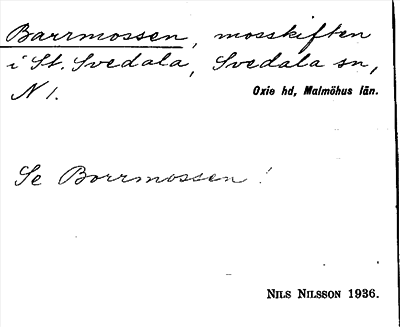 Barrmossen, mosskiften
i St. Svedala, Svedala sn,
N 1. Oxie hd, Malmöhus län.
Se Borrmossen!
NILS NILSSON 1936.